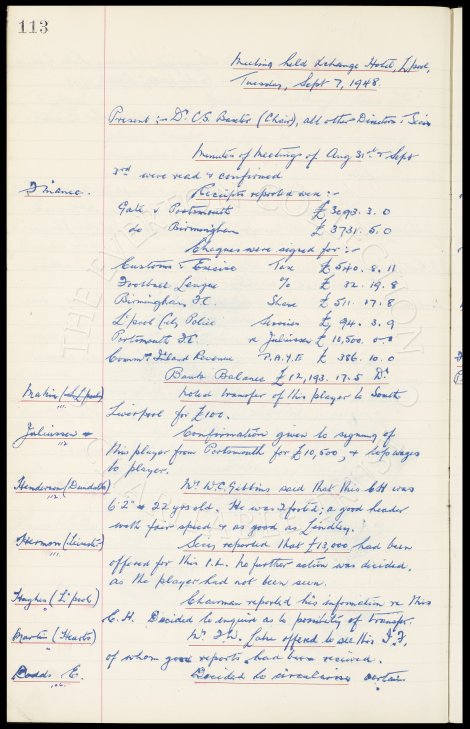 113
Meeting held Exchange Hotel, L'pool,
Tuesday, Sept 7, 1948.
Present :- Dr. C.S. Baxter (Chair), all other Directors & Secy
Minutes of Meetings of Aug 31st & Sept
3rd were read & confirmed
Finance. Receipts reported were :-
Gate v Portsmouth £ 3093. 3. 0
do Birmingham £ 3731. 5. 0
Cheques were signed for :-
Customs & Excise Tax £ 540. 8. 11
Football League % £ 32. 19. 8
Birmingham F.C. Share £ 511. 17. 8
L'pool City Police Services £ 94. 3. 9
Portsmouth F.C. re Juliussen £ 10,500. 0-0
Commrs Inland Revenue P.A.Y.E £ 386. 10. 0
Bank Balance £ 12,193. 17. 5 Dr
Makin (L'pool) Noted transfer of this player to South
Liverpool for £100.
Juliussen Confirmation given to signing of
this player from Portsmouth for £10,500, & wages
to player.
Henderson (Dundalk) Mr W.C. Gibbins said that this CH was
6'2" 22 yrs old. He was 2 footed; a good header
with fair speed & as good as Lindley.
Secy reported that £13,000 had been
offered for this I.L. No further action was decided,
as the player had not been seen.
Hughes (L'pool) Chairman reported his information re this
C.H. Decided to enquire as to possibility of transfer.
Martin (Hearts) offered to see this
of whom good reports had been received.
Dodds E. Decided to circularise certain